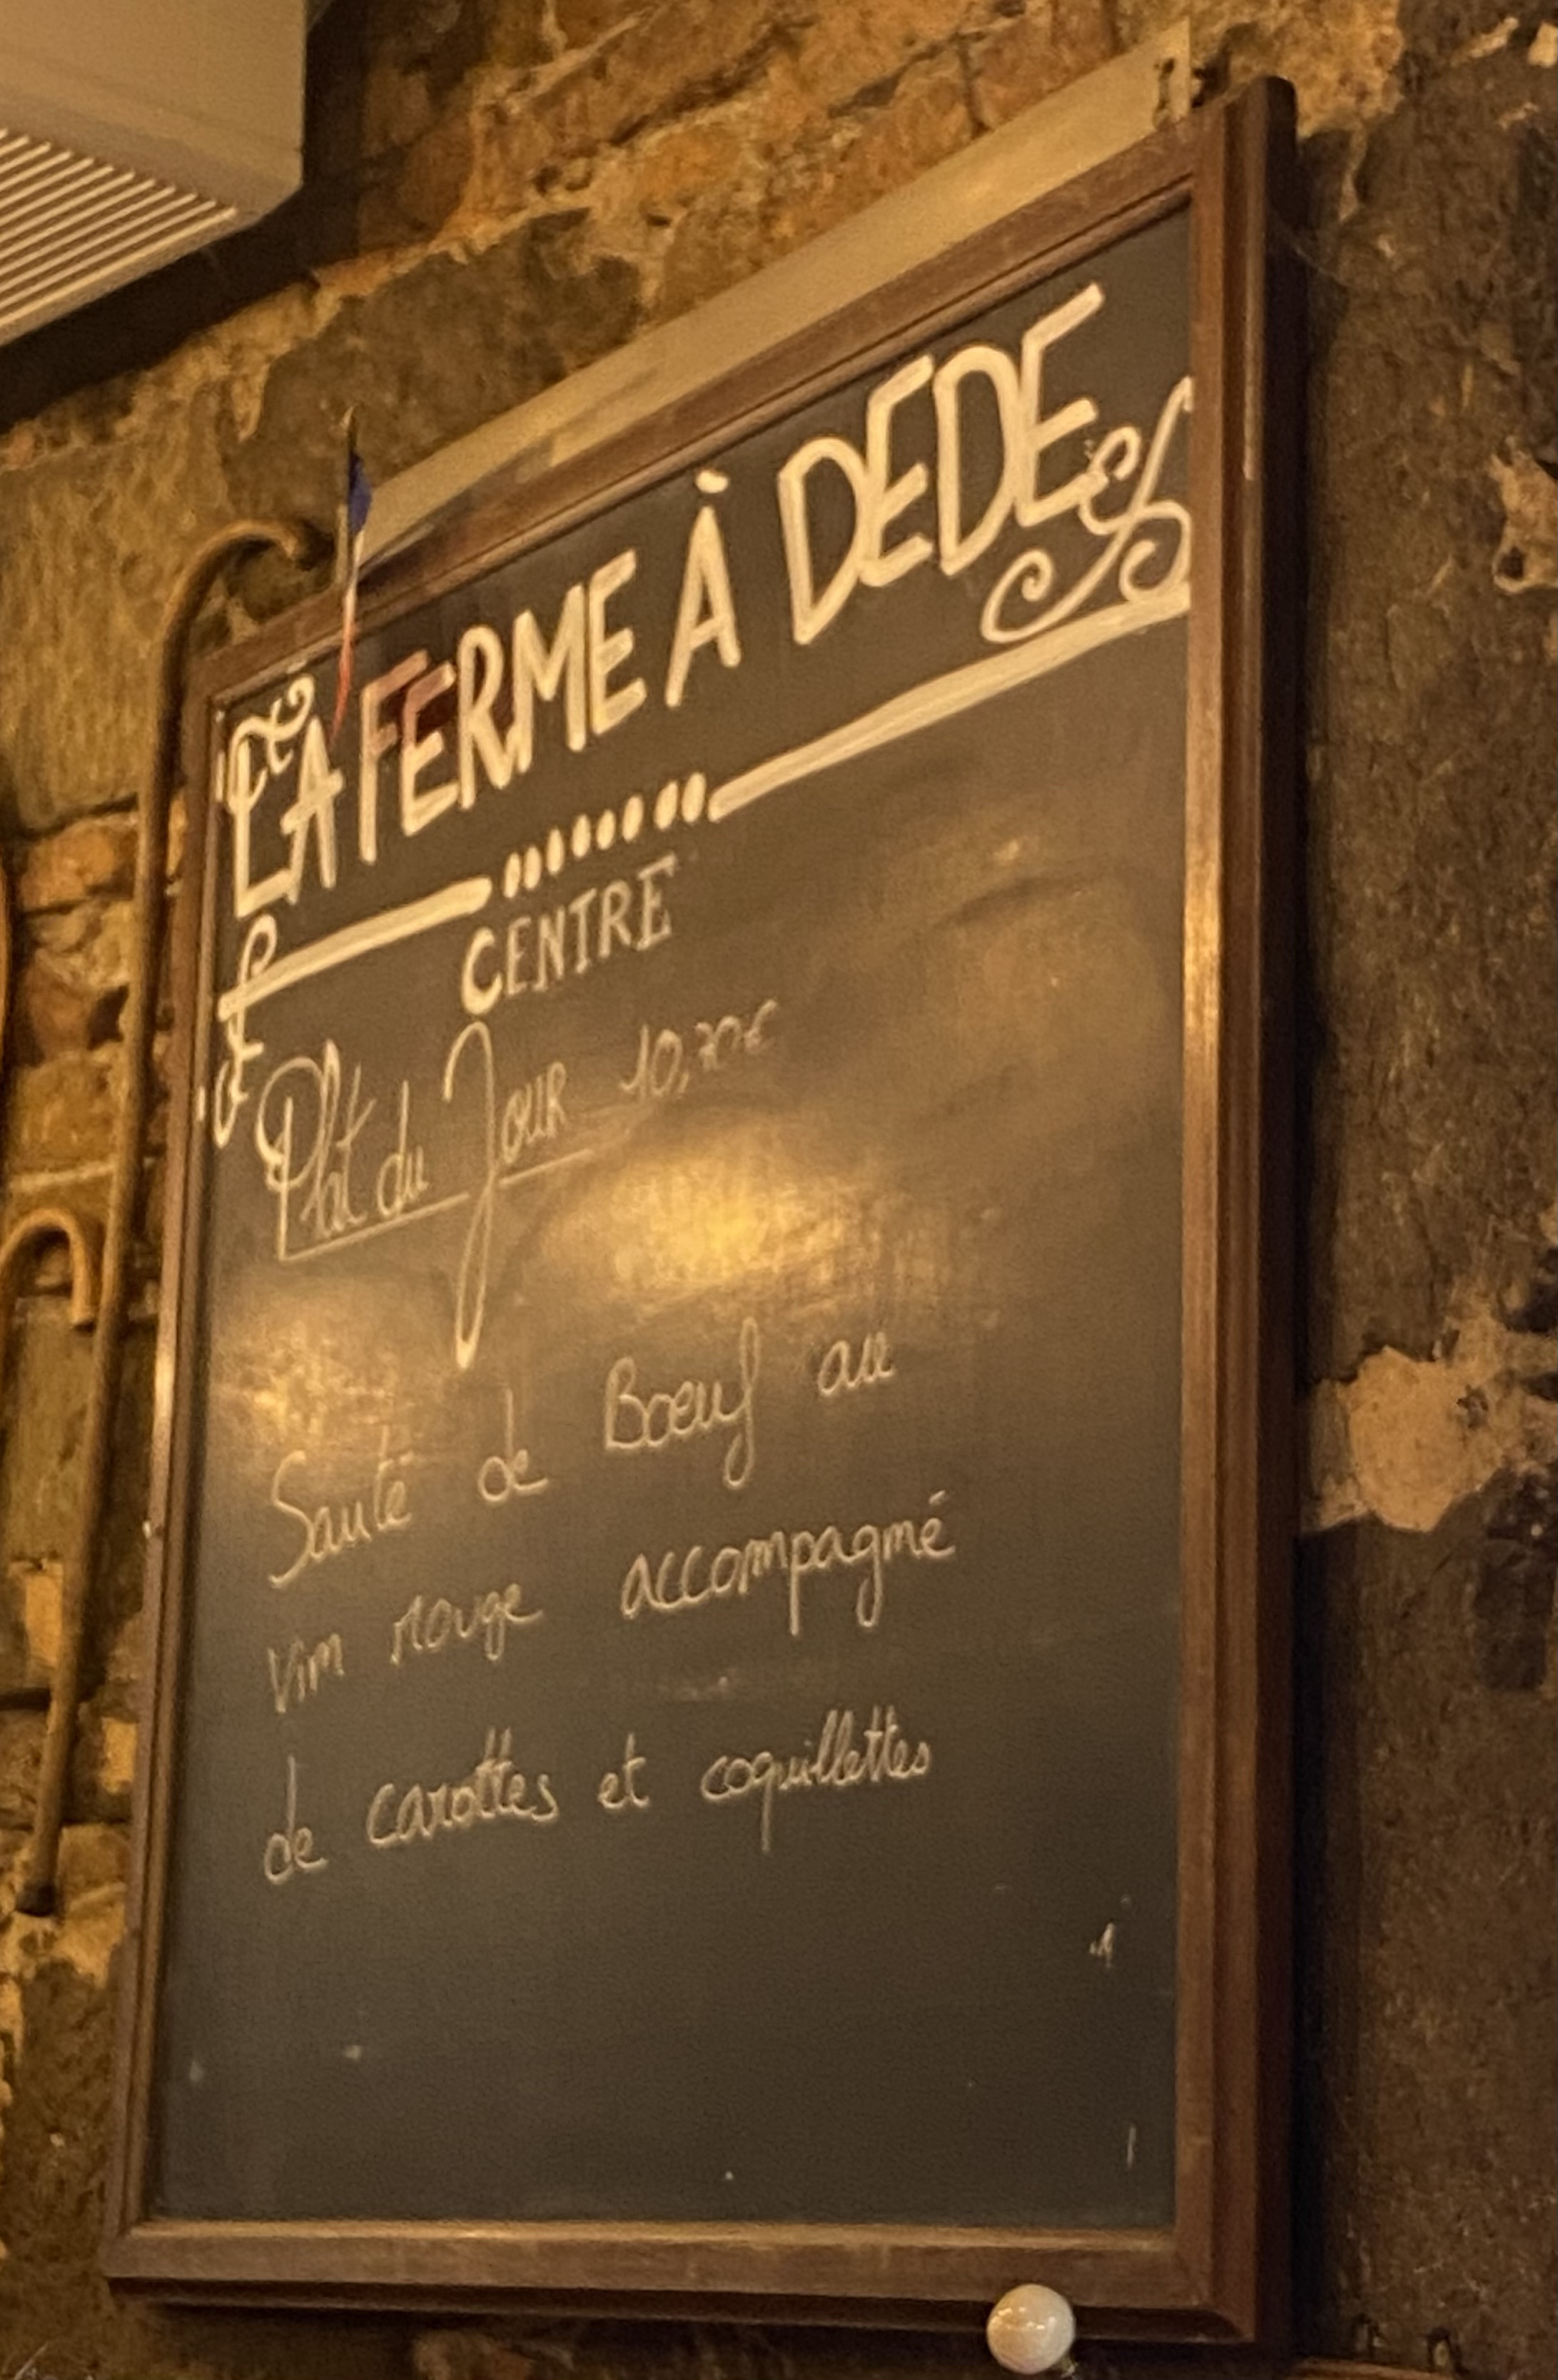 LA FERME À DEDE
CENTRE
Plat du Jour 10,70€
Sauté de Boeuf au
vin rouge accompagné
de carottes et coquillettes